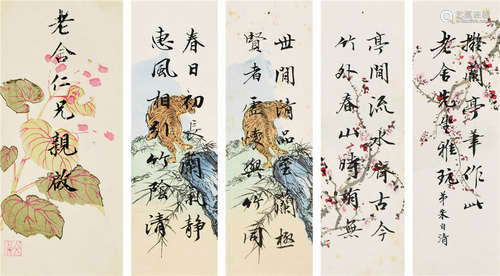 老舍仁兄親啟
春日初長蘭氣靜
惠風相引竹陰清
世間清品至蘭極
賢者虛懷與竹同
亭間流水齊古今
竹外春山時有無
擬蘭亭筆作此
老舍先生雅玩 弟朱自清